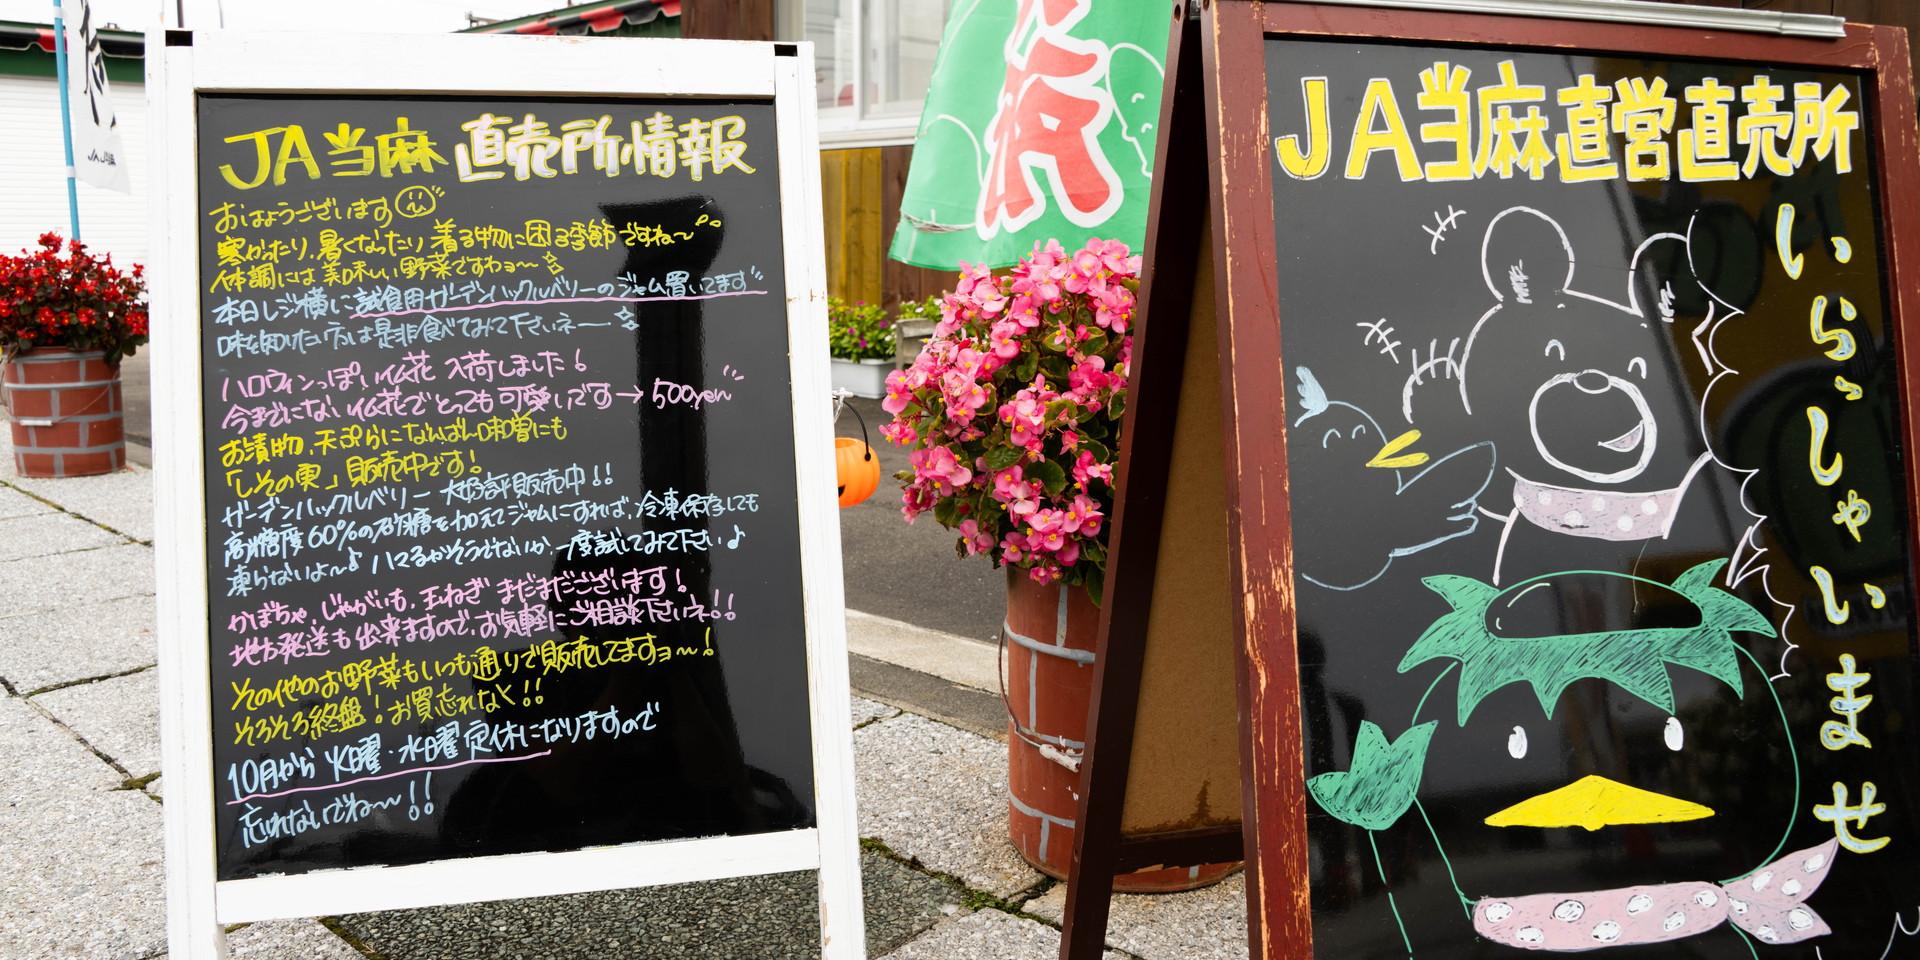 JA当麻 直売所情報
おはようございます
寒かったり、暑くなったり 着る物に困る季節ですね〜
体調には美味しい野菜ですわョ〜
本日レジ横に試食用ガーデンハックルベリーのジャム置いてます
味を知りたい方は是非食べてみて下さいネ──
ハロウィンっぽい仏花 入荷しました!
今までにない仏花でとっても可愛いです→500yen
お漬物、天ぷらになんばん味噌にも
「しその実」販売中です!
ガーデンハックルベリー 大好評販売中!!
高糖度60%の砂糖を加えてジャムにすれば、冷凍保存しても
凍らないよ〜♪ ハマるかそうでないか、一度試してみて下さい♪
かぼちゃ、じゃがいも、玉ねぎ まだまだございます!
地方発送も出来ますので、お気軽にご相談下さいネ!!
その他のお野菜もいつも通りで販売してますョ〜!
そろそろ終盤!お買忘れなく!!
10月から 火曜・水曜 定休になりますので
忘れないでね〜!!
JA当麻直営直売所
いらっしゃいませ